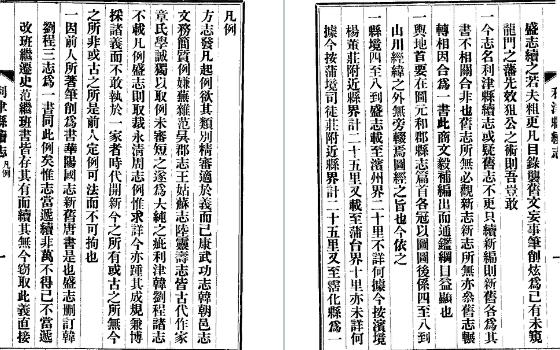 凡例
方志發凡起例欲其類別精審適於義而已康武功志韓朝邑志
文務簡質例嫌蕪雜范吳郡志王姑蘇志陸靈壽志皆古代作家
章氏學誠獨以取例未審短之遂為大純之疵利津韓劉程諸志
不載凡例盛志則取裁永清周志例惟求詳今亦踵其成規兼博
採諸義而不敢執於一家者時代開新今之所有或古之所無今
之所非或古之所是前人定例可法而不可拘也
一因前人所著筆創為書華陽國志新舊唐書是也盛志刪訂韓
劉程三志為一書同此例矣惟志當遞續非萬不得已不當遞
改班繼遷史范繼班書皆存其有而續其無今竊取此義直接
利津縣續志 凡例 一
盛志續之若夫粗更凡目錄襲舊文妄事筆創炫為己有未窺
龍門之藩先效狙公之術則吾豈敢
一今志名利津縣續志或疑舊志不更只續新編則新舊各為其
書不相關合非也舊志所無必觀新志新志所無亦叅舊志輾
轉相因合為一書此文毅補編出而通鑑綱目益顯也
一輿地首要在圖元和郡縣志篇首各冠以圖圖後係四至八到
山川經緯之外無旁輟焉圖經之旨也今依之
一縣境四至八到盛志載至濱州界二十里不詳何據今按濱境
楊董莊附近縣界計二十五里又載至蒲台界十里亦未詳何
據今按蒲境司徒莊附近縣界計二十五里又至霑化縣為一